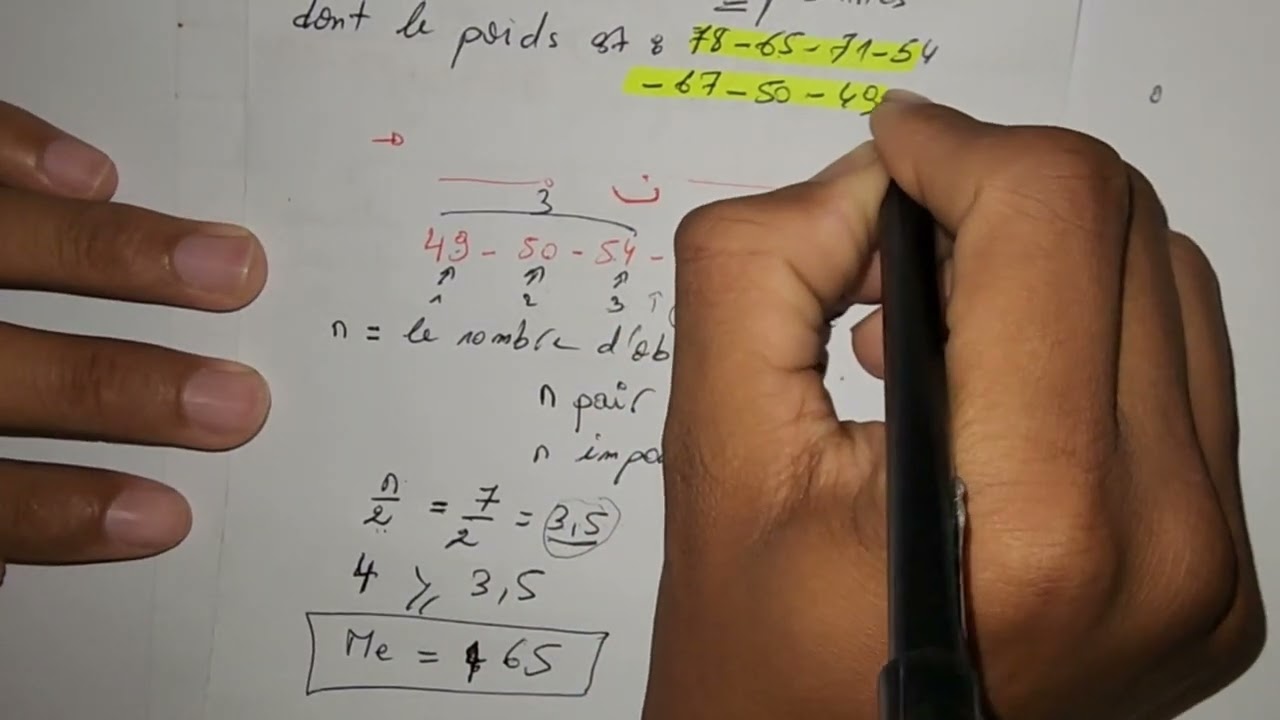 dont le poids est : 78 - 65 - 71 - 54
- 67 - 50 - 49
3 ن
49 - 50 - 54 -
1 2 3
n = le nombre d'ob
n pair
n impa
n/2 = 7/2 = 3,5
4 ⩾ 3,5
Me = 65